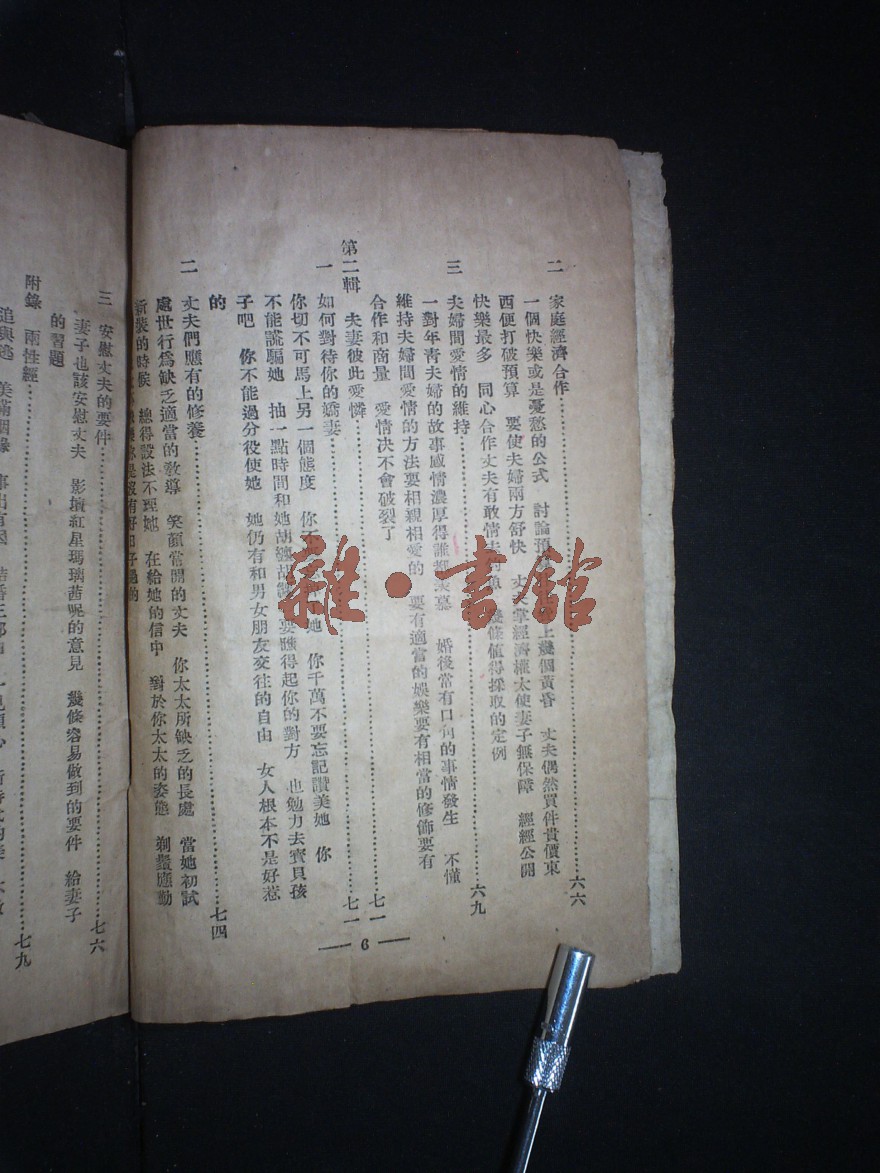 二 家庭經濟合作……六六
一個快樂或是憂愁的公式 討論預 上幾個黃昏 丈夫偶然買件貴價東
西便打破預算 要使夫婦兩方舒快 丈夫掌經濟權太使妻子無保障 經經公開
快樂最多 同心合作丈夫有敢情夫 幾條值得採取的定例
三 夫婦間愛情的維持……六九
一對年青夫婦的故事感情濃厚得誰都 慕 婚後常有口 的事情發生 不懂
維持夫婦間愛情的方法要相親相愛的 要有適當的娛樂要有相當的修飾要有
合作和商量 愛情决不會破裂了……七一
第二輯 夫妻彼此愛憐
一 如何對待你的嬌妻……七一
你切不可馬上另一個態度 你不 她 你千萬不要忘記讚美她 你
不能謊騙她 抽一點時間和她胡纏胡 要瞧得起你的對方 也勉力去寶貝孩
子吧 你不能過分役使她 她仍有和男女朋友交往的自由 女人根本不是好惹
的
二 丈夫們應有的修養……七四
處世行爲缺乏適當的敎導 笑顏常開的丈夫 你太太所缺乏的長處 當她初試
新裝的時候 總得設法不理她 在給她的信中 對於你太太的姿態 剃鬚應勤
是沒有好日子過的
6
三 安慰丈夫的要件……七六
妻子也該安慰丈夫 影壇紅星瑪璃茜呢的意見 幾條容易做到的要件 給妻子
的習題
附錄 兩性經……七九
追與逃 美滿姻緣 事出有因
雜·書館